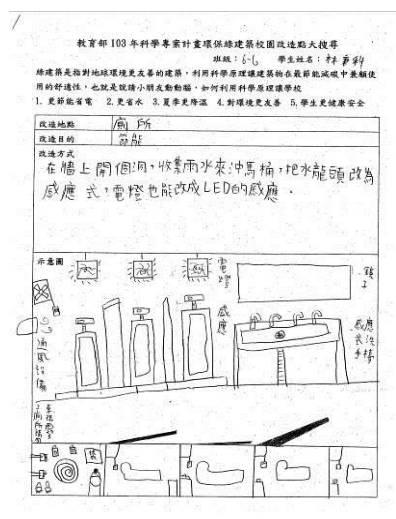 教育部 103 年科學專案計畫環保綠建築校園改造點大搜尋
班級：6-6 學生姓名：林
綠建築是指對地球環境更友善的建築，利用科學原理讓建築物在最節能減碳中兼顧使
用的舒適性，也就是說請小朋友動動腦，如何利用科學原理讓學校
1. 更節能省電 2.更省水 3.夏季更降溫 4.對環境更友善 5.學生更健康安全
改造地點 廁所
改造目的 節能
改造方式
在牆上開個洞，收集雨水來沖馬桶，把水龍頭改為
感應式，電燈也能改成LED的感應。
示意圖
電燈
感應
鏡子
感應式洗手
通風設備